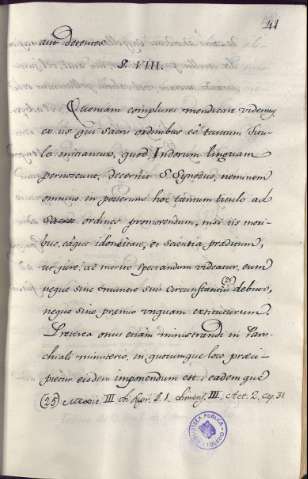 41
aut decenter
§. VIII.
Quoniam complures mendicare videmus
ex iis qui sacris ordinibus eo tantum titu-
lo initiantur, quod Indorum linguam
pernoscunt, decernit S. Synodus, neminem
omnino in posterum hoc tantum titulo ad
ordines promovendum, nisi iis mori-
bus, eaque idoneitate, et scientia praeditum,
ut jure, ac merito sperandum videatur, eum
neque sine munere sui
neque sine praemio unquam extiturum.
Praeterea onus etiam ministrandi in Paro-
chiali ministerio, in quocumque loco praeci-
pietur eidem imponendum est; eademque
(25) Mexic. III lib. 1. tit. III. Act. 2, Cap. 31
BIBLIOTECA PUBLICA
TOLEDO